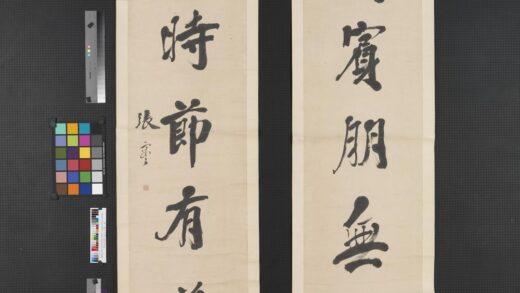 賓朋無
時節有
張謇